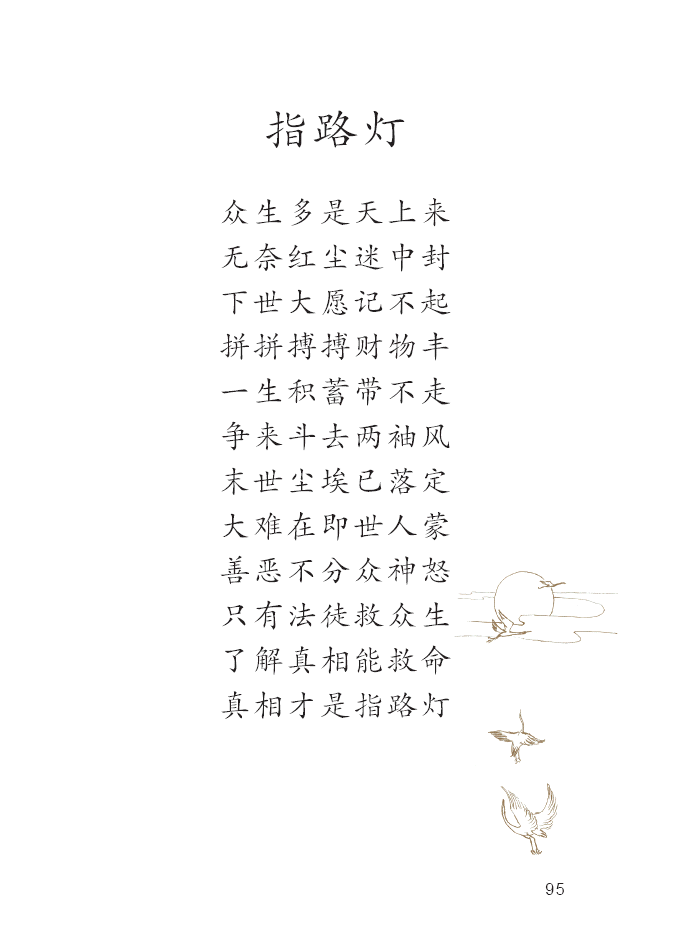 指路灯
众生多是天上来
无奈红尘迷中封
下世大愿记不起
拼拼搏搏财物丰
一生积蓄带不走
争来斗去两袖风
末世尘埃已落定
大难在即世人蒙
善恶不分众神怒
只有法徒救众生
了解真相能救命
真相才是指路灯
95